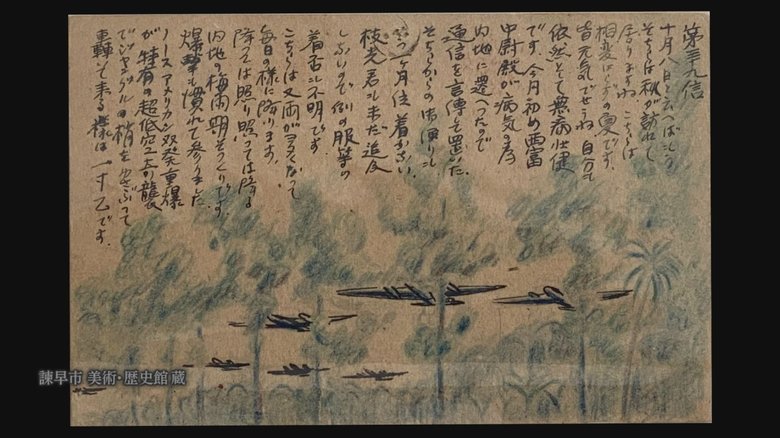 第五十九信
十月八日と云へばもう
そちらは秋が訪れて
居りますね こちらは
相変はらずの夏です。
皆元気でせうね 自分も
依然として無病壮健
です。今月初め西富
中尉殿が病気の為
内地に還へったので
通信を言傳て置いた。
そちらからの御便りも
ヶ月位着かない。
枝光君にも未だ追及
しないので例の服等の
着否も不明です。
こちらは又雨が多くなって
毎日の様に降ります。
降っては照り照っては降る
内地の梅雨期そっくりです。
爆撃も慣れて参りました
ノースアメリカン双発重爆
が特有の超低空でお襲
でジャングルの梢をゆさぶって
轟いて来る様は一寸乙です。
諫早市 美術・歴史館 蔵